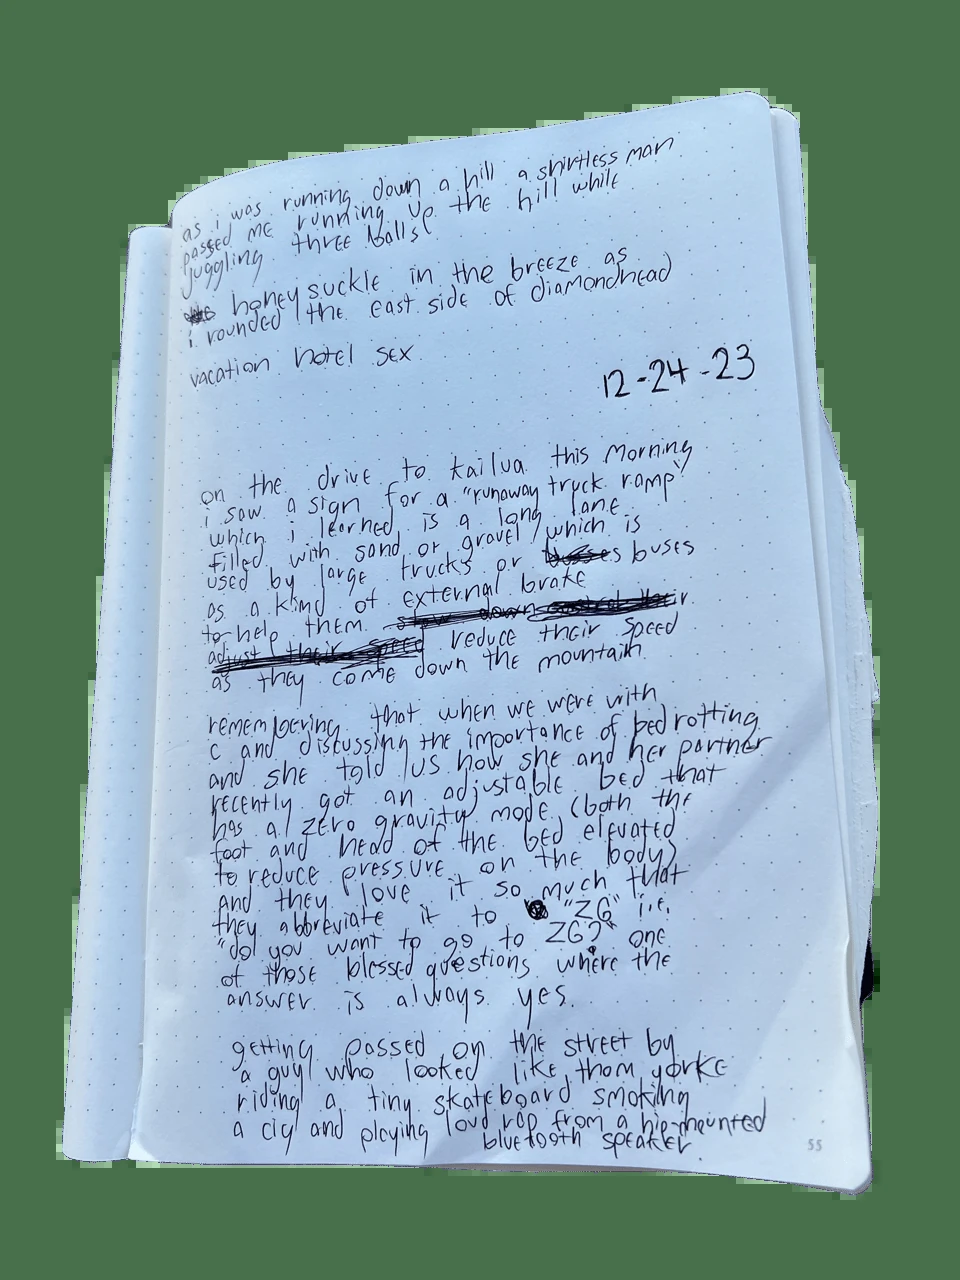 as i was running down a hill a shirtless man
passed me running up the hill while
juggling three balls
honeysuckle in the breeze as
i rounded the east side of diamondhead
vacation hotel sex
12-24-23
on the drive to kailua this morning
i saw a sign for a "runaway truck ramp"
which i learned is a long lane
filled with sand or gravel, which is
used by large trucks or busses buses
as a kind of external brake
to help them slow down control their
adjust their speed reduce their speed
as they come down the mountain
remembering that when we were with
c and discussing the importance of bedrotting
and she told us how she and her partner
recently got an adjustable bed that
has a zero gravity mode (both the
foot and head of the bed elevated
to reduce pressure on the body)
and they love it so much that
they abbreviate it to "ZG" i.e.
"do you want to go to ZG?" one
of those blessed questions where the
answer is always yes.
getting passed on the street by
a guy who looked like thom yorke
riding a tiny skateboard smoking
a cig and playing loud rap from a hip-mounted
bluetooth speaker.
55